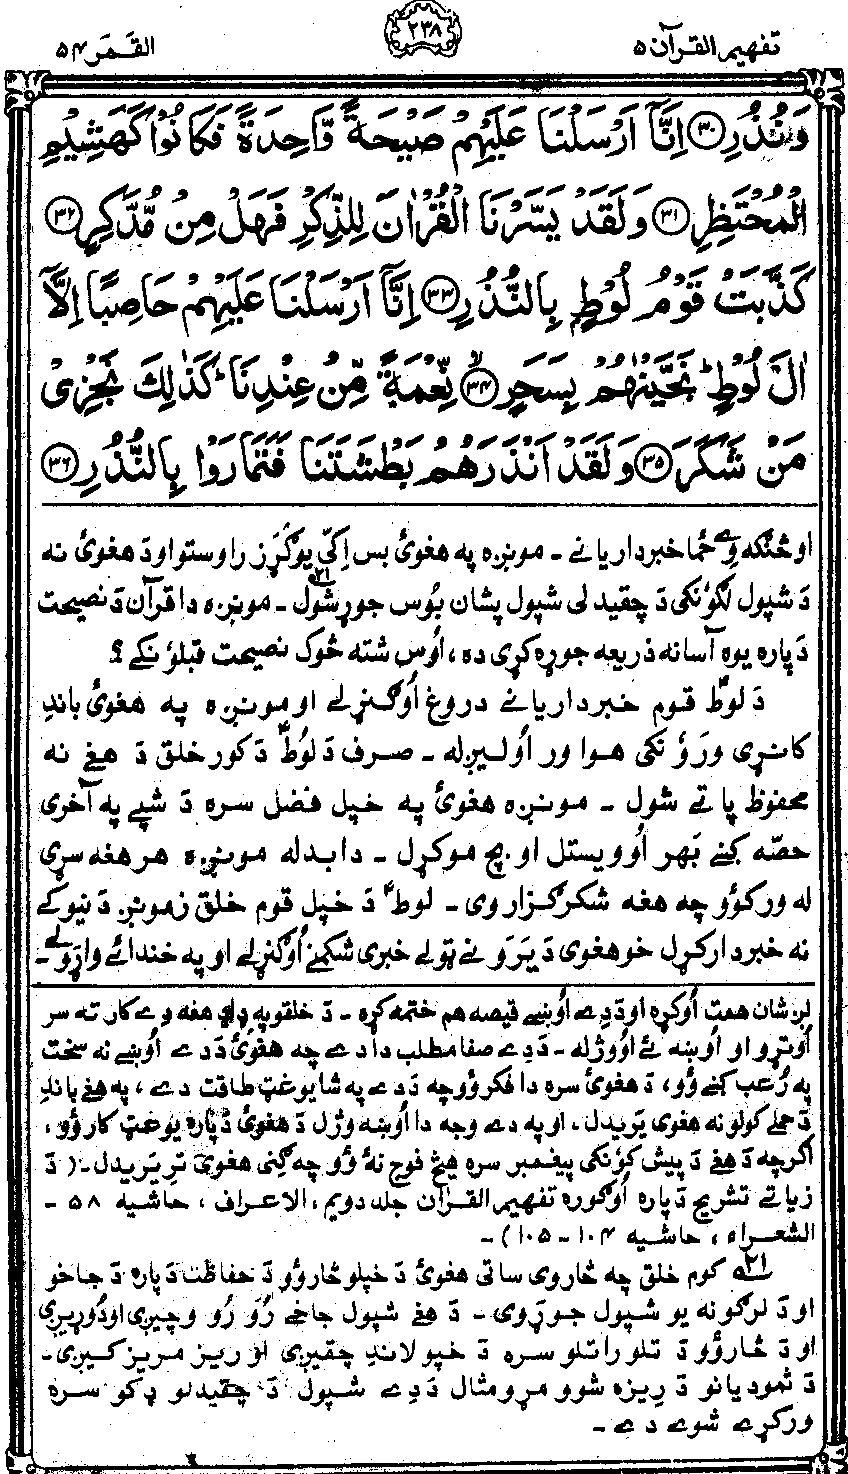 تفهیم القرآن ۵
۲۳۸
القَمَر ۵۴
وَنُذُرِ ﴿۳۰﴾ اِنَّآ اَرْسَلْنَا عَلَيْهِمْ صَيْحَةً وَّاحِدَةً فَكَانُوْا كَهَشِيْمِ
الْمُحْتَظِرِ ﴿۳۱﴾ وَلَقَدْ يَسَّرْنَا الْقُرْاٰنَ لِلذِّكْرِ فَهَلْ مِنْ مُّدَّكِرٍ ﴿۳۲﴾
كَذَّبَتْ قَوْمُ لُوْطٍ بِالنُّذُرِ ﴿۳۳﴾ اِنَّآ اَرْسَلْنَا عَلَيْهِمْ حَاصِبًا اِلَّآ
اٰلَ لُوْطٍ ؕ نَجَّيْنٰهُمْ بِسَحَرٍ ۙ﴿۳۴﴾ نِّعْمَةً مِّنْ عِنْدِنَا ؕ كَذٰلِكَ نَجْزِيْ
مَنْ شَكَرَ ﴿۳۵﴾ وَلَقَدْ اَنْذَرَهُمْ بَطْشَتَنَا فَتَمَارَوْا بِالنُّذُرِ ﴿۳۶﴾
او څنګه وے ځما خبرداریانے ـ مونږه په هغوئ بس اِکی یو کړز راوستو او دَ هغوئ نه
دَ شپول لګوُنکی دَ چقیدلی شپول پشان بُوس جوړ شول ۳۱ ـ مونږه دا قرآن دَ نصیحت
دَ پاره یوه آسانه ذریعه جوړه کړی ده، اُوس شته څوک نصیحت قبلوُنکے ؟
دَ لوطؑ قوم خبرداریانے دروغ اُوګنړلے او مونږه په هغوئ باندِ
کانړی ورَوُنکی هوا ور اُولیږله ـ صرف دَ لُوطؑ دَ کور خلق دَ هغے نه
محفوظ پاتے شول ـ مونږه هغوئ په خپل فضل سره دَ شپے په آخری
حصّه کښے بَهر اُوویستل او بچ مو کړل ـ دا بدله مونږه هر هغه سړی
له ورکوُو چه هغه شکرګزار وی ـ لوطؑ دَ خپل قوم خلق زمونږ دَ نیوکے
نه خبردار کړل خو هغوی دَ یَرَوَ نے ټولے خبری شکمنے اُوګنړلے او په خندائے واړولے ـ
لږ شان همت اُوکړه او دَ دِے اُوښے قیصه هم ختمه کړه ـ دَ خلقو په داد هغه دے کار ته سر
اُوترِو او اُوښه ئے اُووژله ـ دَ دِے صفا مطلب دا دے چه هغوئ دَ دے اُوښے نه سخت
په رُعب کښے وُو، دَ هغوئ سره دا فکر وُو چه دَ دے په شا یو غټ طاقت دے، په هغے باندِ
دَ حملے کولو نه هغوی یریدل، او په دے وجه دا اُوښه وژل دَ هغوئ دَ پاره یو غټ کار وُو،
اګرچه دَ هغے دَ پیش کوُنکی پیغمبر سره هیڅ فوج نهٔ وُو چه ګنی هغوی ترِ یریدل ـ ( دَ
زیاتے تشریح دَ پاره اُوګوره تفهیم القرآن جلد دویم، الاعراف، حاشیه ۵۸ ـ
الشعراء، حاشیه ۱۰۴ ـ ۱۰۵ ) ـ
۲۱ کوم خلق چه څاروی ساتی هغوئ دَ خپلو څاروُو دَ حفاظت دَ پاره دَ جاخو
او دَ لرګو نه یو شپول جوړوی ـ دَ هغے شپول جاخے رُو رُو وچیږی او دُوریږی
او دَ څاروُو دَ تلو راتلو سره دَ خپو لاندِ چقیږی او ریز مریز کیږی ـ
دَ ثمودیانو دَ رِیزه شوو مړو مثال دَ دِے شپول دَ چقیدلو ډکو سره
ورکړے شوے دے ـ